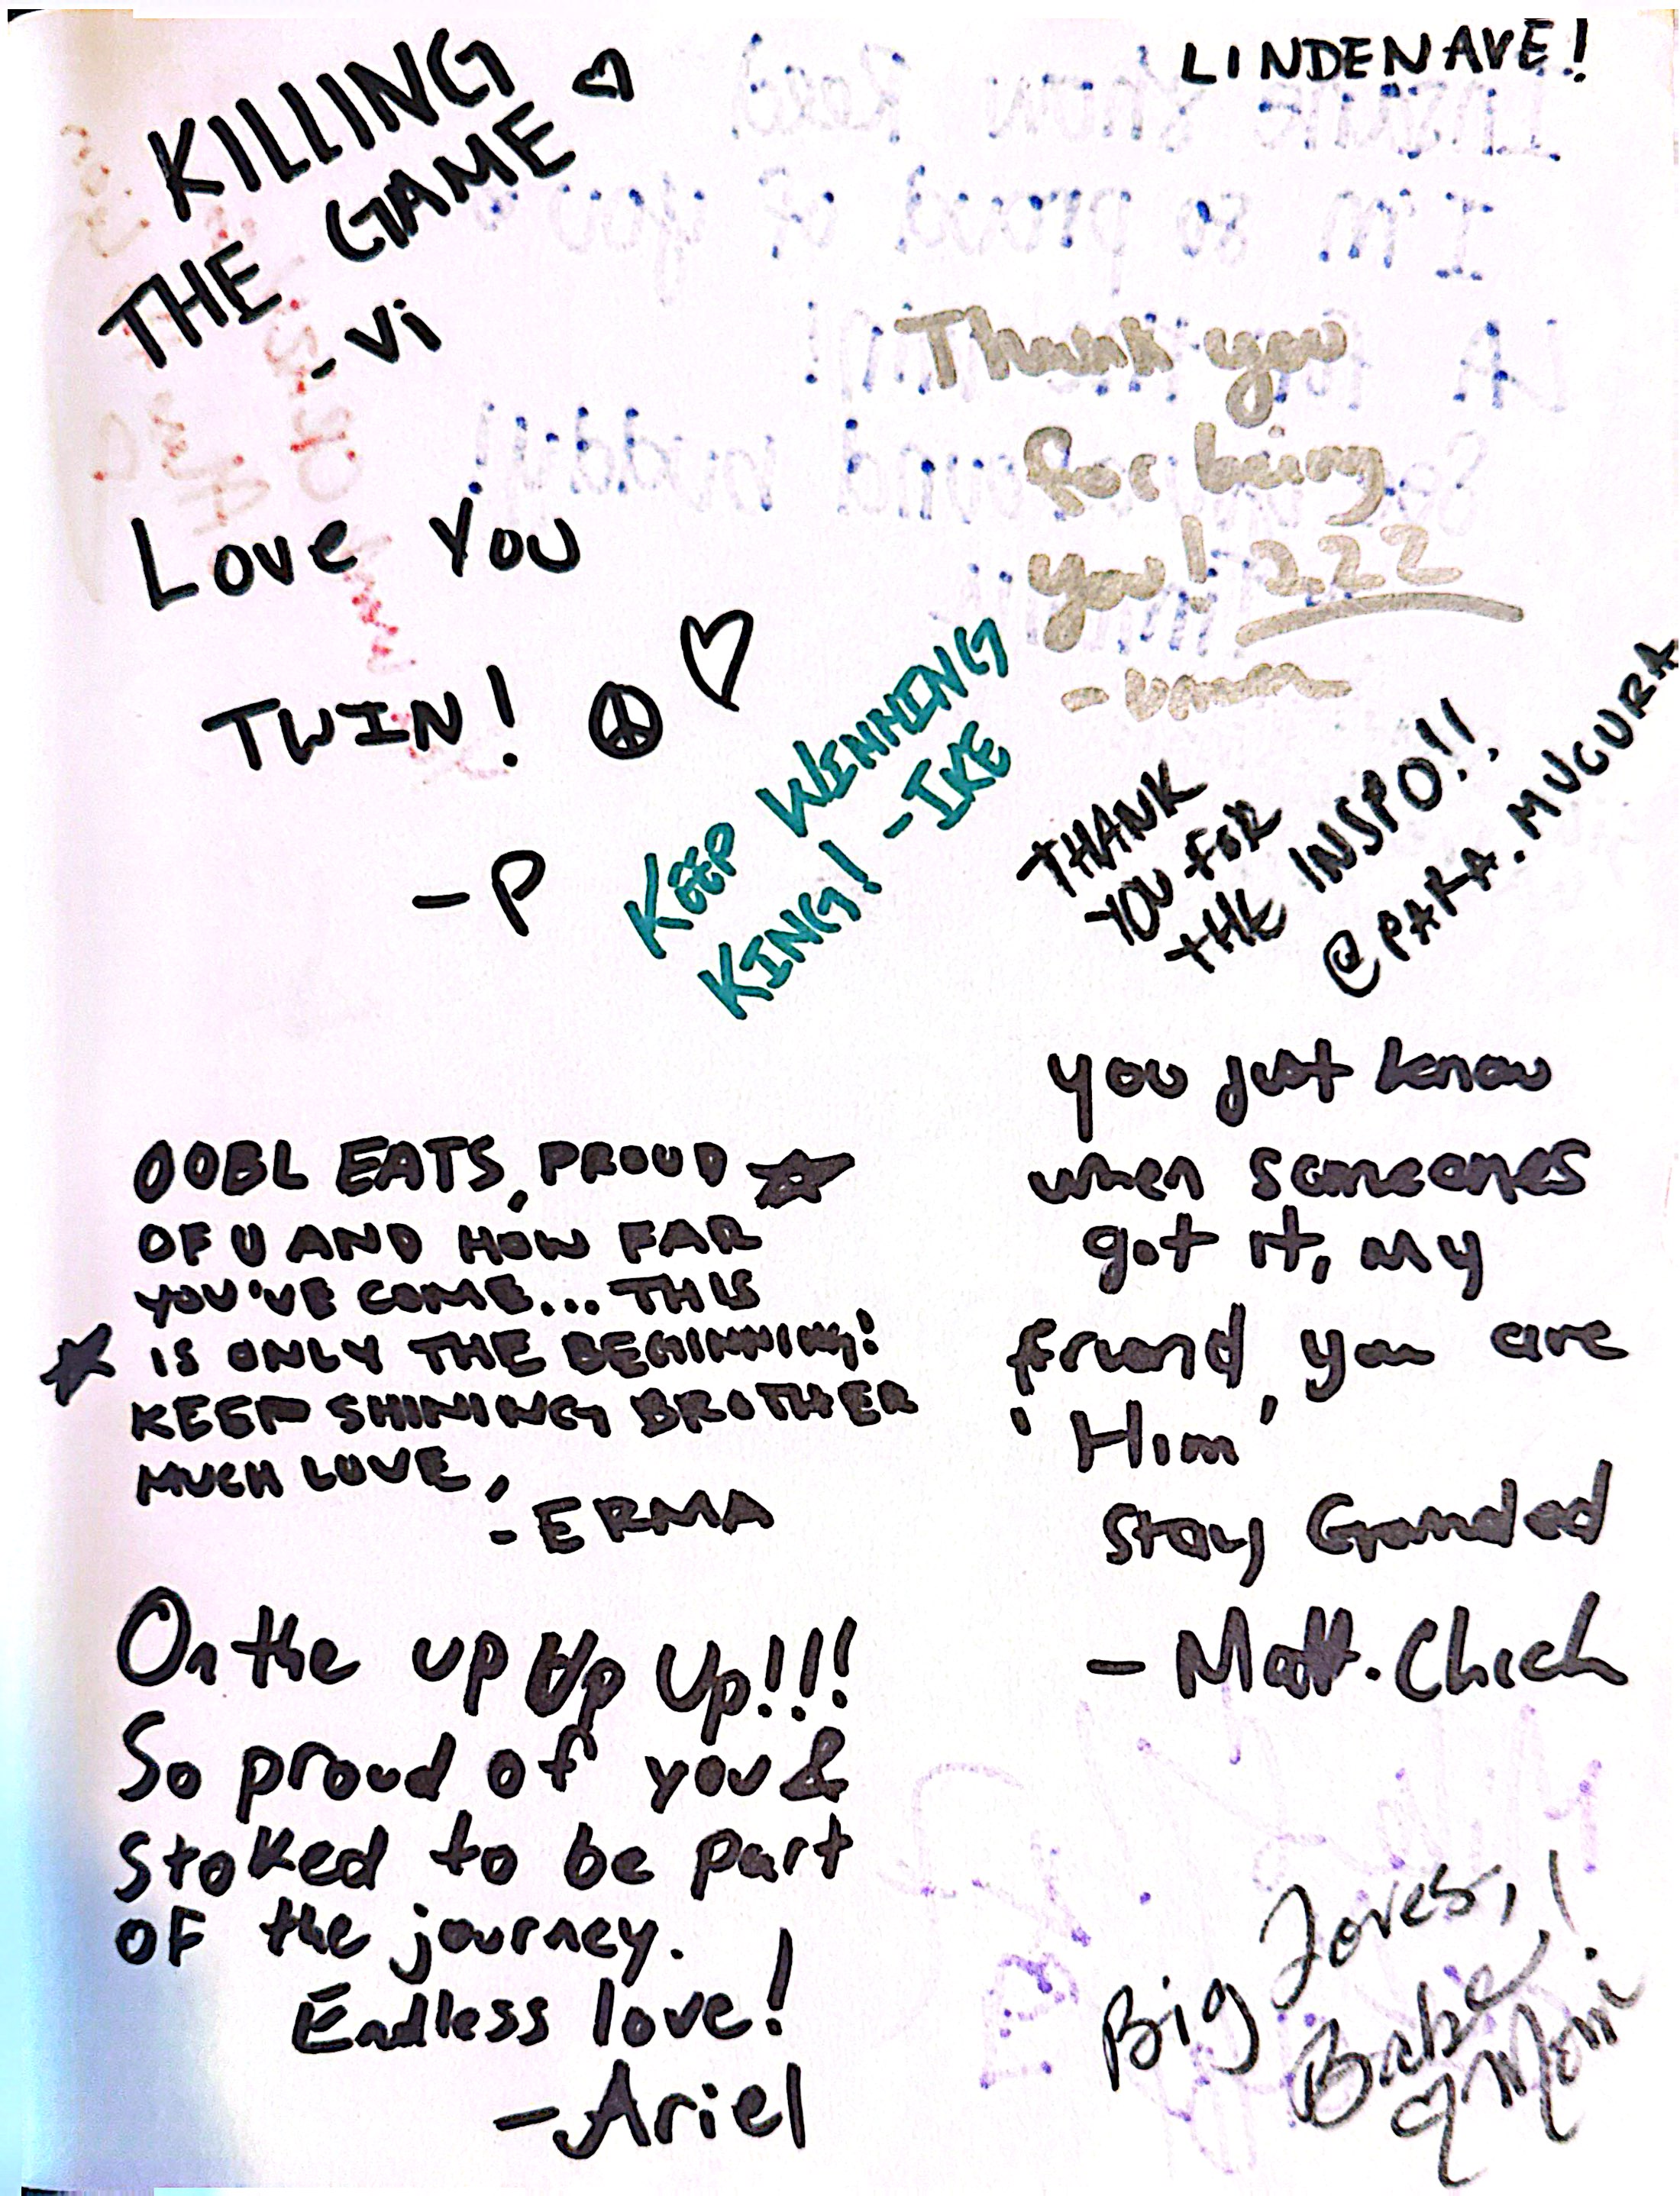 KILLING
THE GAME
- Vi
LINDENAVE!
Thank you
for being
you! 222
Love You
TWIN!
- P
KEEP WINNING
KING! - IKE
THANK
YOU FOR
THE INSPO!!
@PARA.MUGURA
OOBL EATS, PROUD
OF U AND HOW FAR
YOU'VE COME... THIS
IS ONLY THE BEGINNING!
KEEP SHINING BROTHER
MUCH LOVE,
- ERMA
you just know
when someones
got it, my
friend, you are
'Him'
Stay Grounded
- Matt. Chick
On the up Up Up!!!
So proud of you &
stoked to be part
OF the journey.
Endless love!
- Ariel
Big Loves,
Babe
Mom